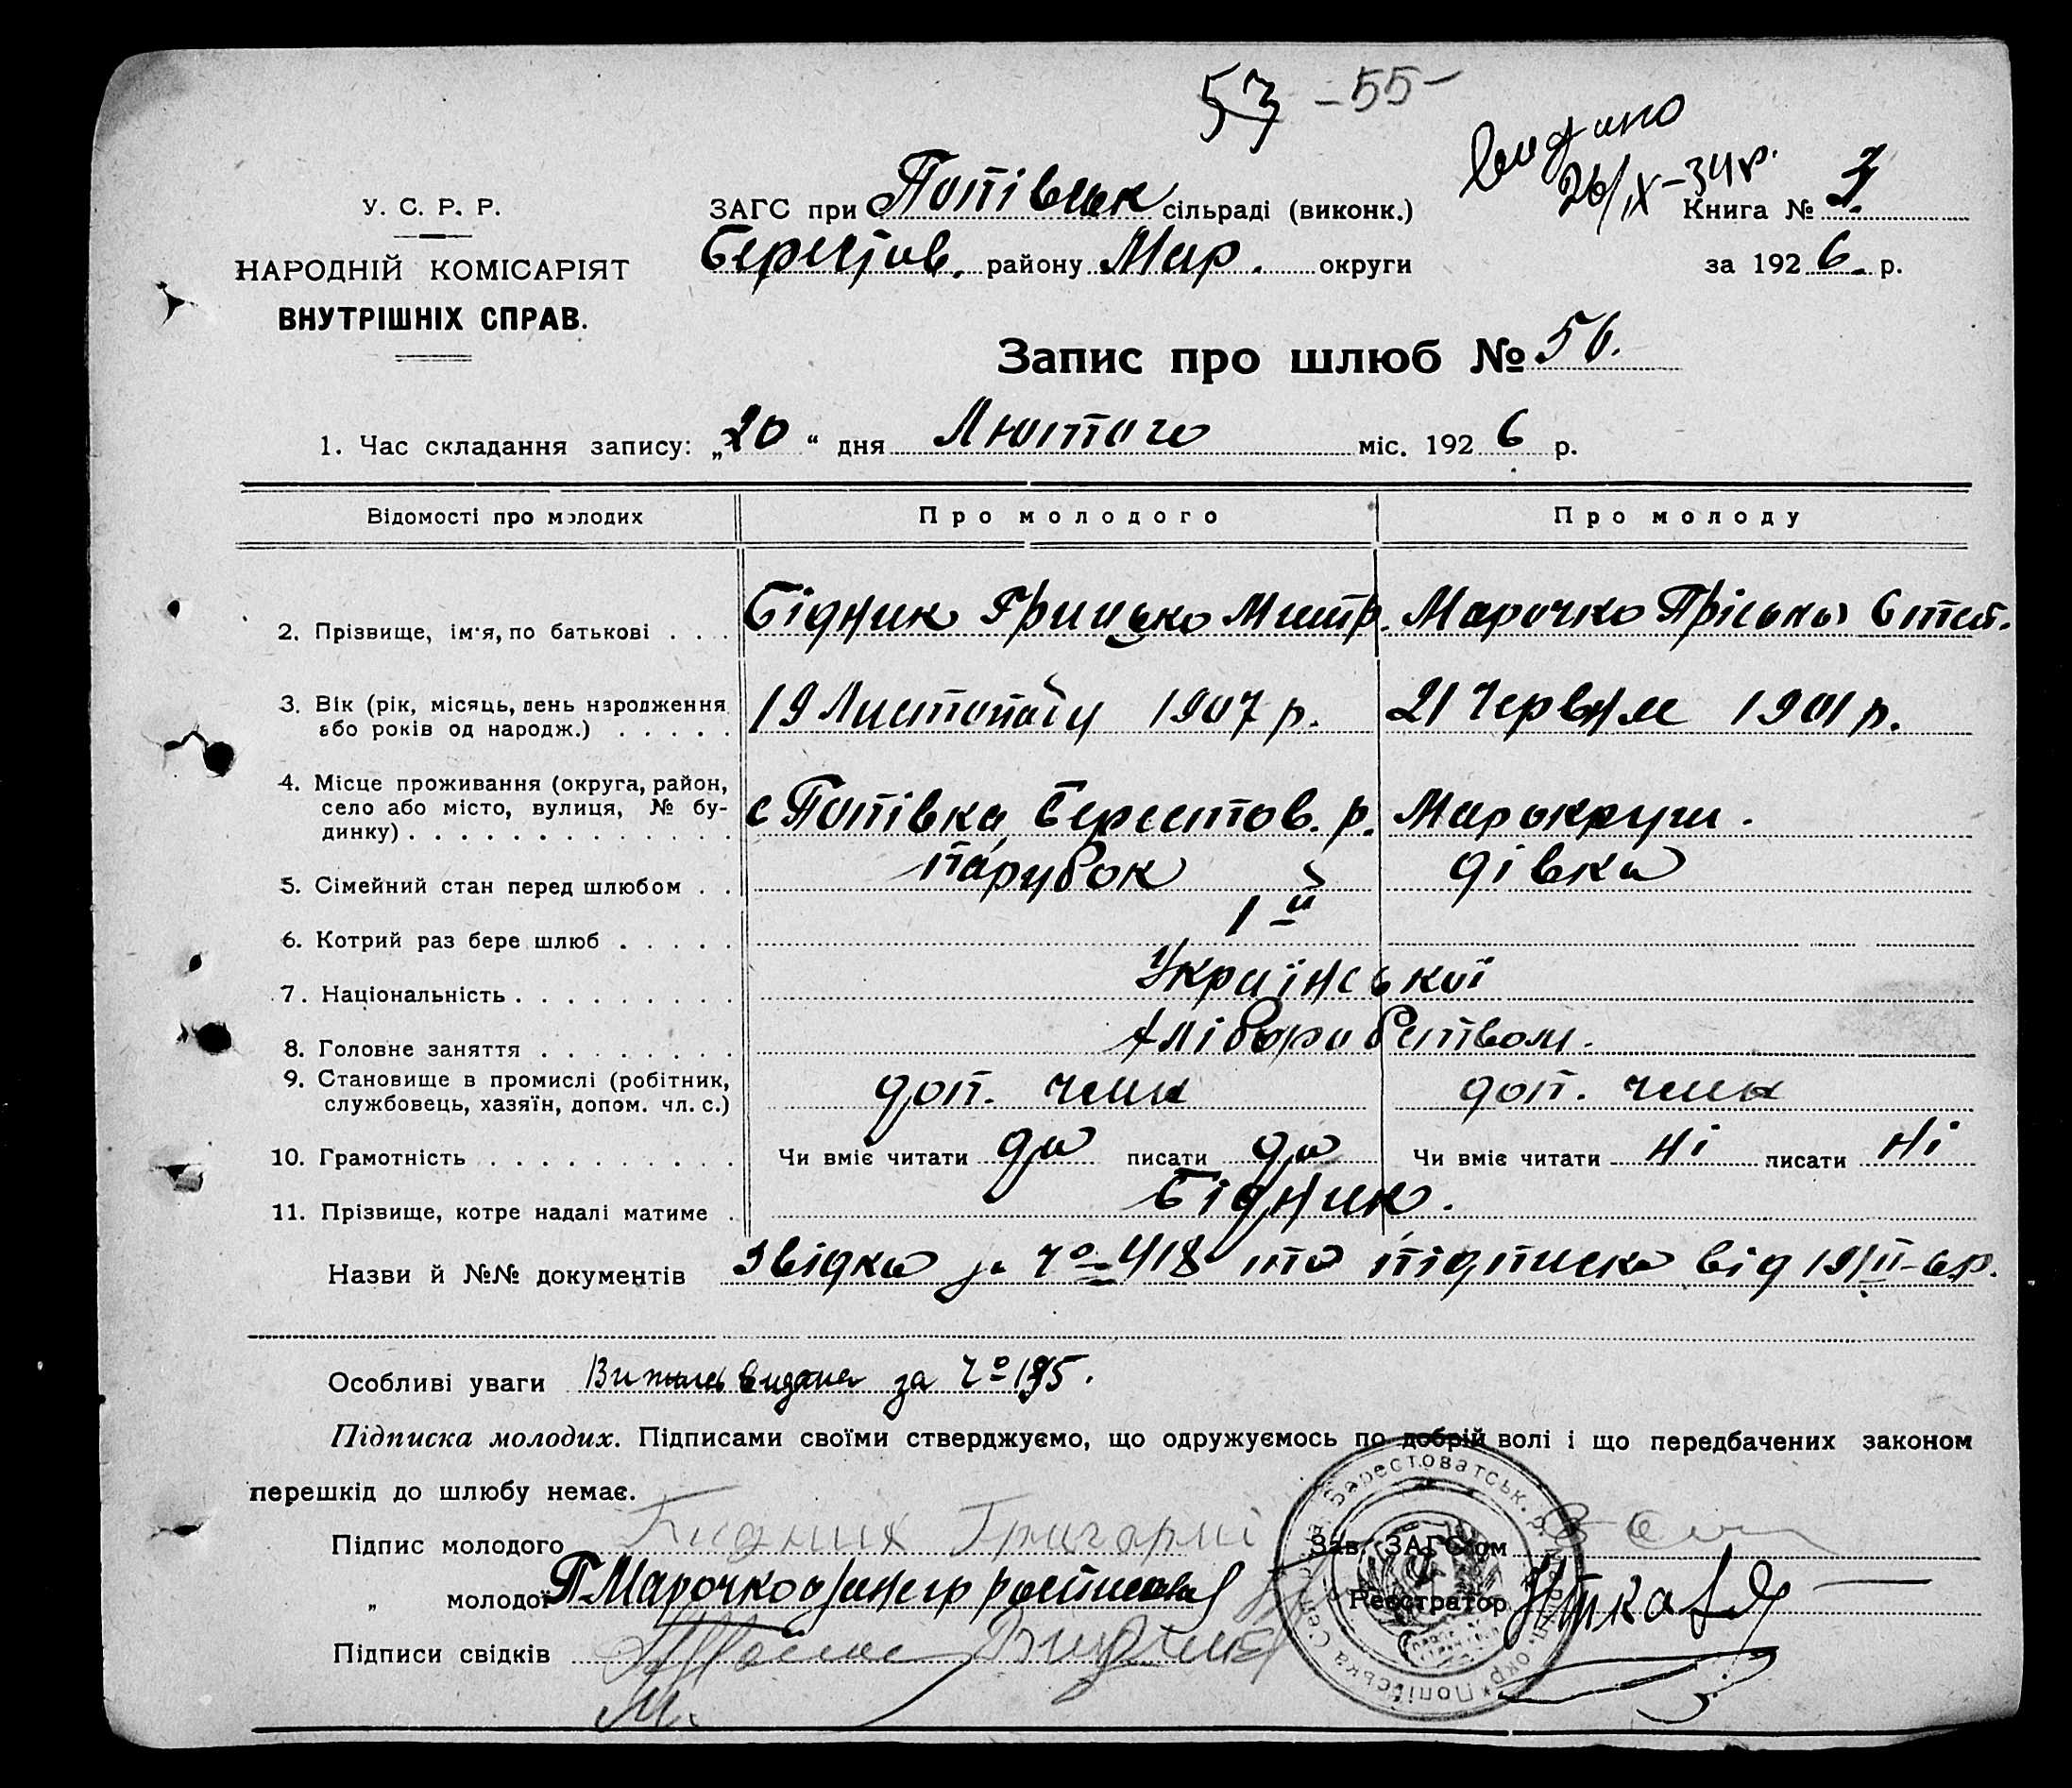 53 – 55 –
видано
26/IX – 34 р.
У. С. Р. Р.
НАРОДНІЙ КОМІСАРІЯТ
ВНУТРІШНІХ СПРАВ.
ЗАГС при Попівськ сільраді (виконк.)
Берестов. району Мар. округи
Книга №
за 1926 р.
Запис про шлюб № 56.
1. Час складання запису: „20“ дня Лютого міс. 1926 р.
Відомості про молодих Про молодого Про молоду
2. Прізвище, ім'я, по батькові . . . Бідник Грицько Митр. Марочко Пріська Степ.
3. Вік (рік, місяць, день народження або років од народж.) . . . . . 19 Листопаду 1907 р. 21 Червня 1901 р.
4. Місце проживання (округа, район, село або місто, вулиця, № будинку) . . . . . . . . . . . . . с Попівка Берестов. р. Марокруги.
5. Сімейний стан перед шлюбом . . парубок дівка
6. Котрий раз бере шлюб . . . . . 1й
7. Національність . . . . . . . . . Української
8. Головне заняття . . . . . . . . Хліборобством.
9. Становище в промислі (робітник, службовець, хазяїн, допом. чл. с.) доп. член доп. член
10. Грамотність . . . . . . . . . . Чи вміє читати да писати да Чи вміє читати ні писати ні
11. Прізвище, котре надалі матиме . Бідник.
Назви й №№ документів Звідка за чо 418 та підписка від 19/II–6р.
Особливі уваги видана за чо 195.
Підписка молодих. Підписами своїми стверджуємо, що одружуємось по добрій волі і що передбачених законом
перешкід до шлюбу немає.
Підпис молодого Бидник Григорий
Зав. ЗАГС'ом
„ молодої П. Марочко
Реєстратор
Підписи свідків
М.
Попівська Сел. Рада Берестоватськ. р. Маріюп. окр.